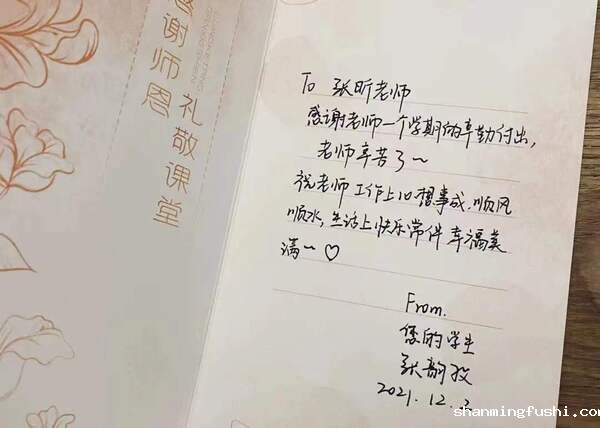 感谢师恩
礼敬课堂
To 张昕老师
感谢老师一个学期的辛勤付出,
老师辛苦了~
祝老师工作上心想事成.顺风
顺水,生活上快乐常伴幸福美
满~♡
From.
您的学生
张韵
2021.12.2
shanmingfushi.com